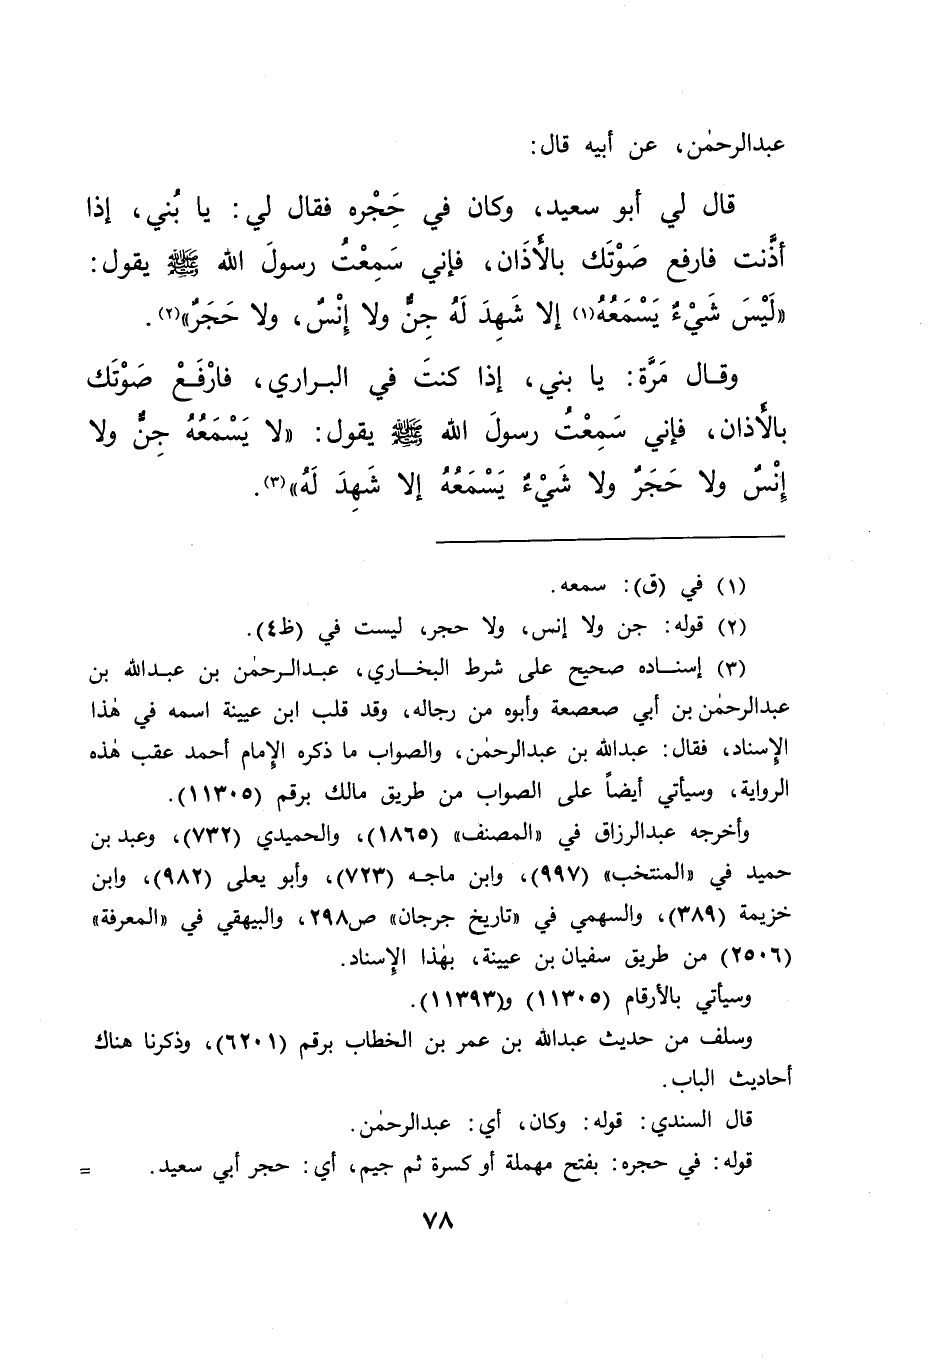 عبدالرحمٰن، عن أبيه قال:
قال لي أبو سعيد، وكان في حَِجْره فقال لي: يا بُني، إذا
أذَّنت فارفع صَوْتَك بالأَذَان، فإني سَمِعْتُ رسولَ الله ﷺ يقول:
«لَيْسَ شَيْءٌ يَسْمَعُهُ(١) إلا شَهِدَ لَهُ جِنٌّ ولا إنْسٌ، ولا حَجَرٌ»(٢).
وقال مَرَّة: يا بني، إذا كنتَ في البراري، فارْفَعْ صَوْتَك
بالأَذان، فإني سَمِعْتُ رسولَ الله ﷺ يقول: «لا يَسْمَعُهُ جِنٌّ ولا
إنْسٌ ولا حَجَرٌ ولا شَيْءٌ يَسْمَعُهُ إلا شَهِدَ لَهُ»(٣).
(١) في (ق): سمعه.
(٢) قوله: جن ولا إنس، ولا حجر، ليست في (ظ٤).
(٣) إسناده صحيح على شرط البخاري، عبدالرحمٰن بن عبدالله بن
عبدالرحمٰن بن أبي صعصعة وأبوه من رجاله، وقد قلب ابن عيينة اسمه في هٰذا
الإسناد، فقال: عبدالله بن عبدالرحمٰن، والصواب ما ذكره الإمام أحمد عقب هٰذه
الرواية، وسيأتي أيضاً على الصواب من طريق مالك برقم (١١٣٠٥).
وأخرجه عبدالرزاق في «المصنف» (١٨٦٥)، والحميدي (٧٣٢)، وعبد بن
حميد في «المنتخب» (٩٩٧)، وابن ماجه (٧٢٣)، وأبو يعلى (٩٨٢)، وابن
خزيمة (٣٨٩)، والسهمي في «تاريخ جرجان» ص٢٩٨، والبيهقي في «المعرفة»
(٢٥٠٦) من طريق سفيان بن عيينة، بهٰذا الإسناد.
وسيأتي بالأرقام (١١٣٠٥) و(١١٣٩٣).
وسلف من حديث عبدالله بن عمر بن الخطاب برقم (٦٢٠١)، وذكرنا هناك
أحاديث الباب.
قال السندي: قوله: وكان، أي: عبدالرحمٰن.
قوله: في حجره: بفتح مهملة أو كسرة ثم جيم، أي: حجر أبي سعيد. =
٧٨